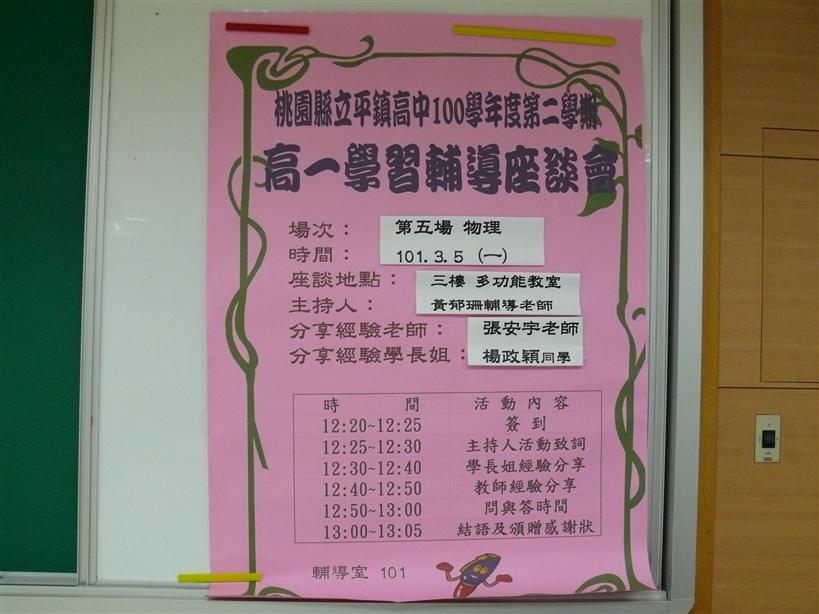 桃園縣立平鎮高中100學年度第二學期
高一學習輔導座談會
場次： 第五場 物理
時間： 101.3.5 (一)
座談地點： 三樓 多功能教室
主持人： 黃郁珊輔導老師
分享經驗老師： 張安宇老師
分享經驗學長姐： 楊政穎同學
時 間 活動內容
12:20~12:25 簽到
12:25~12:30 主持人活動致詞
12:30~12:40 學長姐經驗分享
12:40~12:50 教師經驗分享
12:50~13:00 問與答時間
13:00~13:05 結語及頒贈感謝狀
輔導室 101